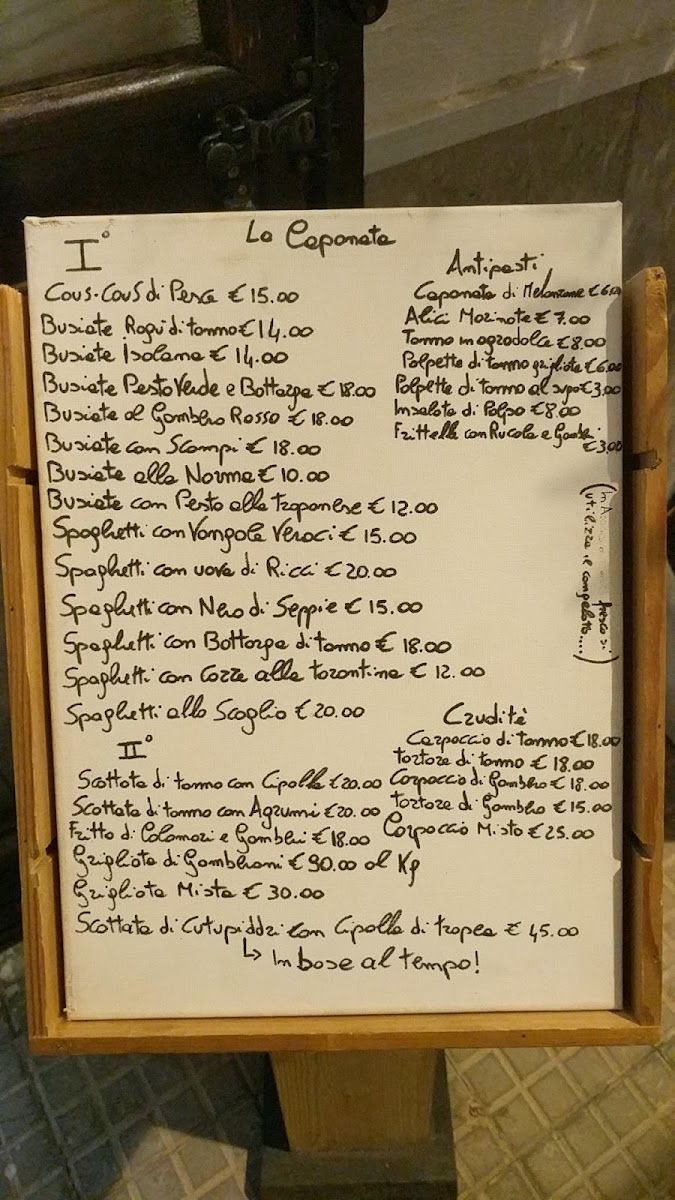 La Caponata
I°
Cous-Cous di Pesce € 15.00
Busiate Ragù di tonno € 14.00
Busiate Isolana € 14.00
Busiate Pesto Verde e Bottarga € 18.00
Busiate al Gambero Rosso € 18.00
Busiate con Scampi € 18.00
Busiate alla Norma € 10.00
Busiate con Pesto alla trapanese € 12.00
Spaghetti con Vongole Veraci € 15.00
Spaghetti con uova di Ricci € 20.00
Spaghetti con Nero di Seppie € 15.00
Spaghetti con Bottarga di tonno € 18.00
Spaghetti con Cozze alla tarantina € 12.00
Spaghetti allo Scoglio € 20.00
Antipasti
Caponata di Melanzane €
Alici Marinate € 7.00
Tonno in agrodolce € 8.00
Polpette di tonno grigliate € 6.00
Polpette di tonno al sugo € 3.00
Insalata di Polpo € 8.00
Frittelle con Rucola e
€ 3.00
(In fresco si
utilizza il congelato.....)
II°
Scottata di tonno con Cipolla € 20.00
Scottata di tonno con Agrumi € 20.00
Fritto di Calamari e Gamberi € 18.00
Grigliata di Gamberoni € 90.00 al Kg
Grigliata Mista € 30.00
Scottata di Cutupiddri con Cipolla di tropea € 45.00
↳ In base al tempo!
Crudité
Carpaccio di tonno € 18.00
tartare di tonno € 18.00
Carpaccio di Gambero € 18.00
tartare di Gambero € 15.00
Carpaccio Misto € 25.00